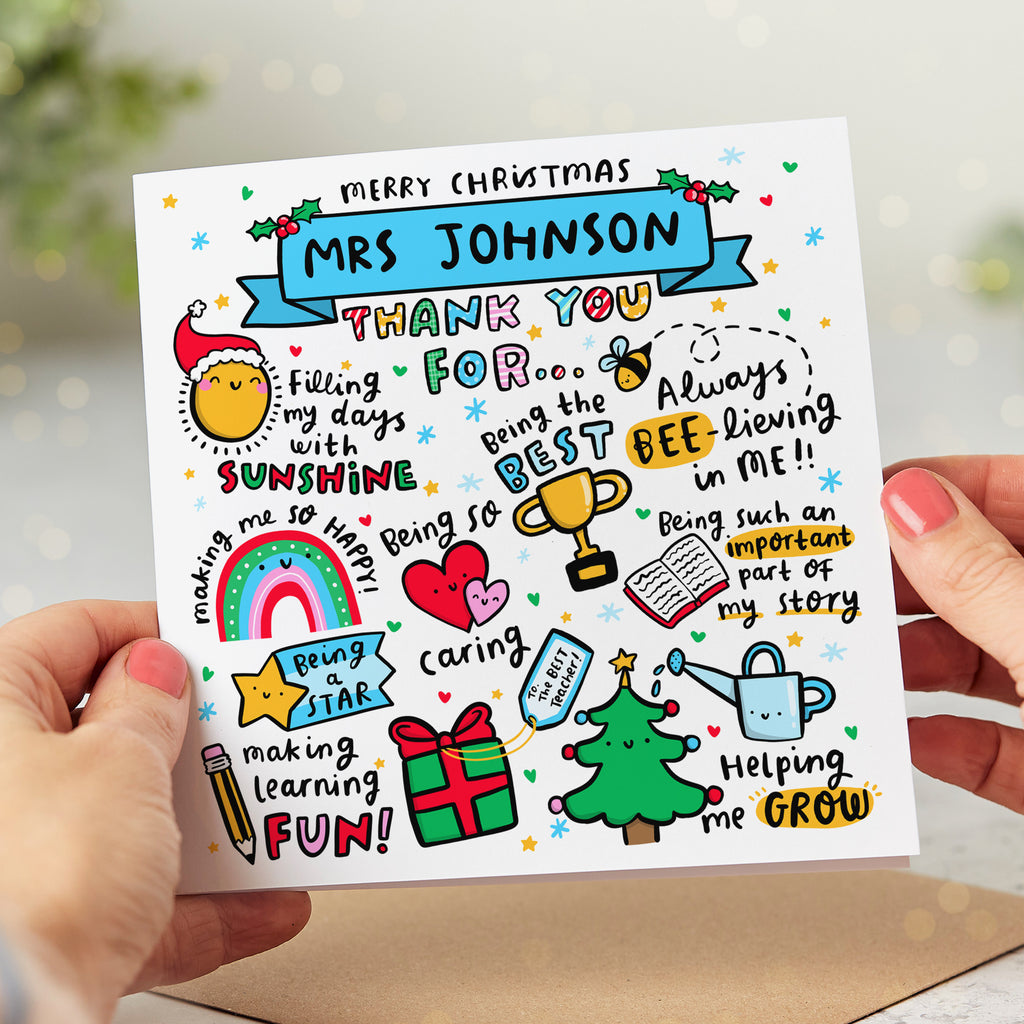 MERRY CHRISTMAS
MRS JOHNSON
THANK YOU
FOR...
Filling
my days
with
SUNSHINE
Being the
BEST
Always
BEE-lieving
in ME!!
making me so HAPPY!
Being so
caring
Being such an
important
part of
my story
Being
a
STAR
TO:
The BEST
Teacher!
making
learning
FUN!
Helping
me GROW